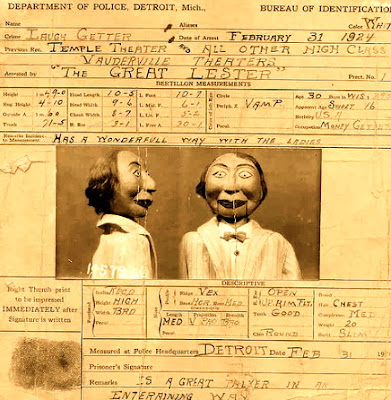 DEPARTMENT OF POLICE, DETROIT, Mich., BUREAU OF IDENTIFICATION
Name Aliases Color WHIT
Crime LAUGH GETTER Date of Arrest FEBRUARY 31 1924
Previous Rec. TEMPLE THEATER AND ALL OTHER HIGH CLASS
VAUDERVILLE THEATERS
Arrested by "THE GREAT LESTER" Prect. No.
BERTILLON MEASUREMENTS
Height 1 m Head Length 10-5 L. Foot 10-7 Circle Age 30 Born in WIS.
Eng. Height 4-10 Head Width 9-6 L. Mid. F. 6-1 Periph. Z VAMP Apparent Age SWEET 16
Outside A. Cheek Width L. Lit. F. Nativity U.S.A
Trunk 71-5 R. Ear 3-1 L. Fore A. Occupation MONEY GETTER
Remarks Incident to Measurement HAS A WONDERFULL WAY WITH THE LADIES
DESCRIPTIVE
Right Thumb print
to be impressed
IMMEDIATELY after
Signature is written
Height HIGH
Width BRD
Ridge VEX
Base HOR.
Length MED
OPEN
Teeth GOOD
Chin ROUND
Beard
Hair CHEST
Complexion MED
Weight 20
Build SLIM
Measured at Police Headquarters DETROIT Date FEB 31 19
Prisoner's Signature
Remarks IS A GREAT TALKER IN AN
ENTERAINING WAY